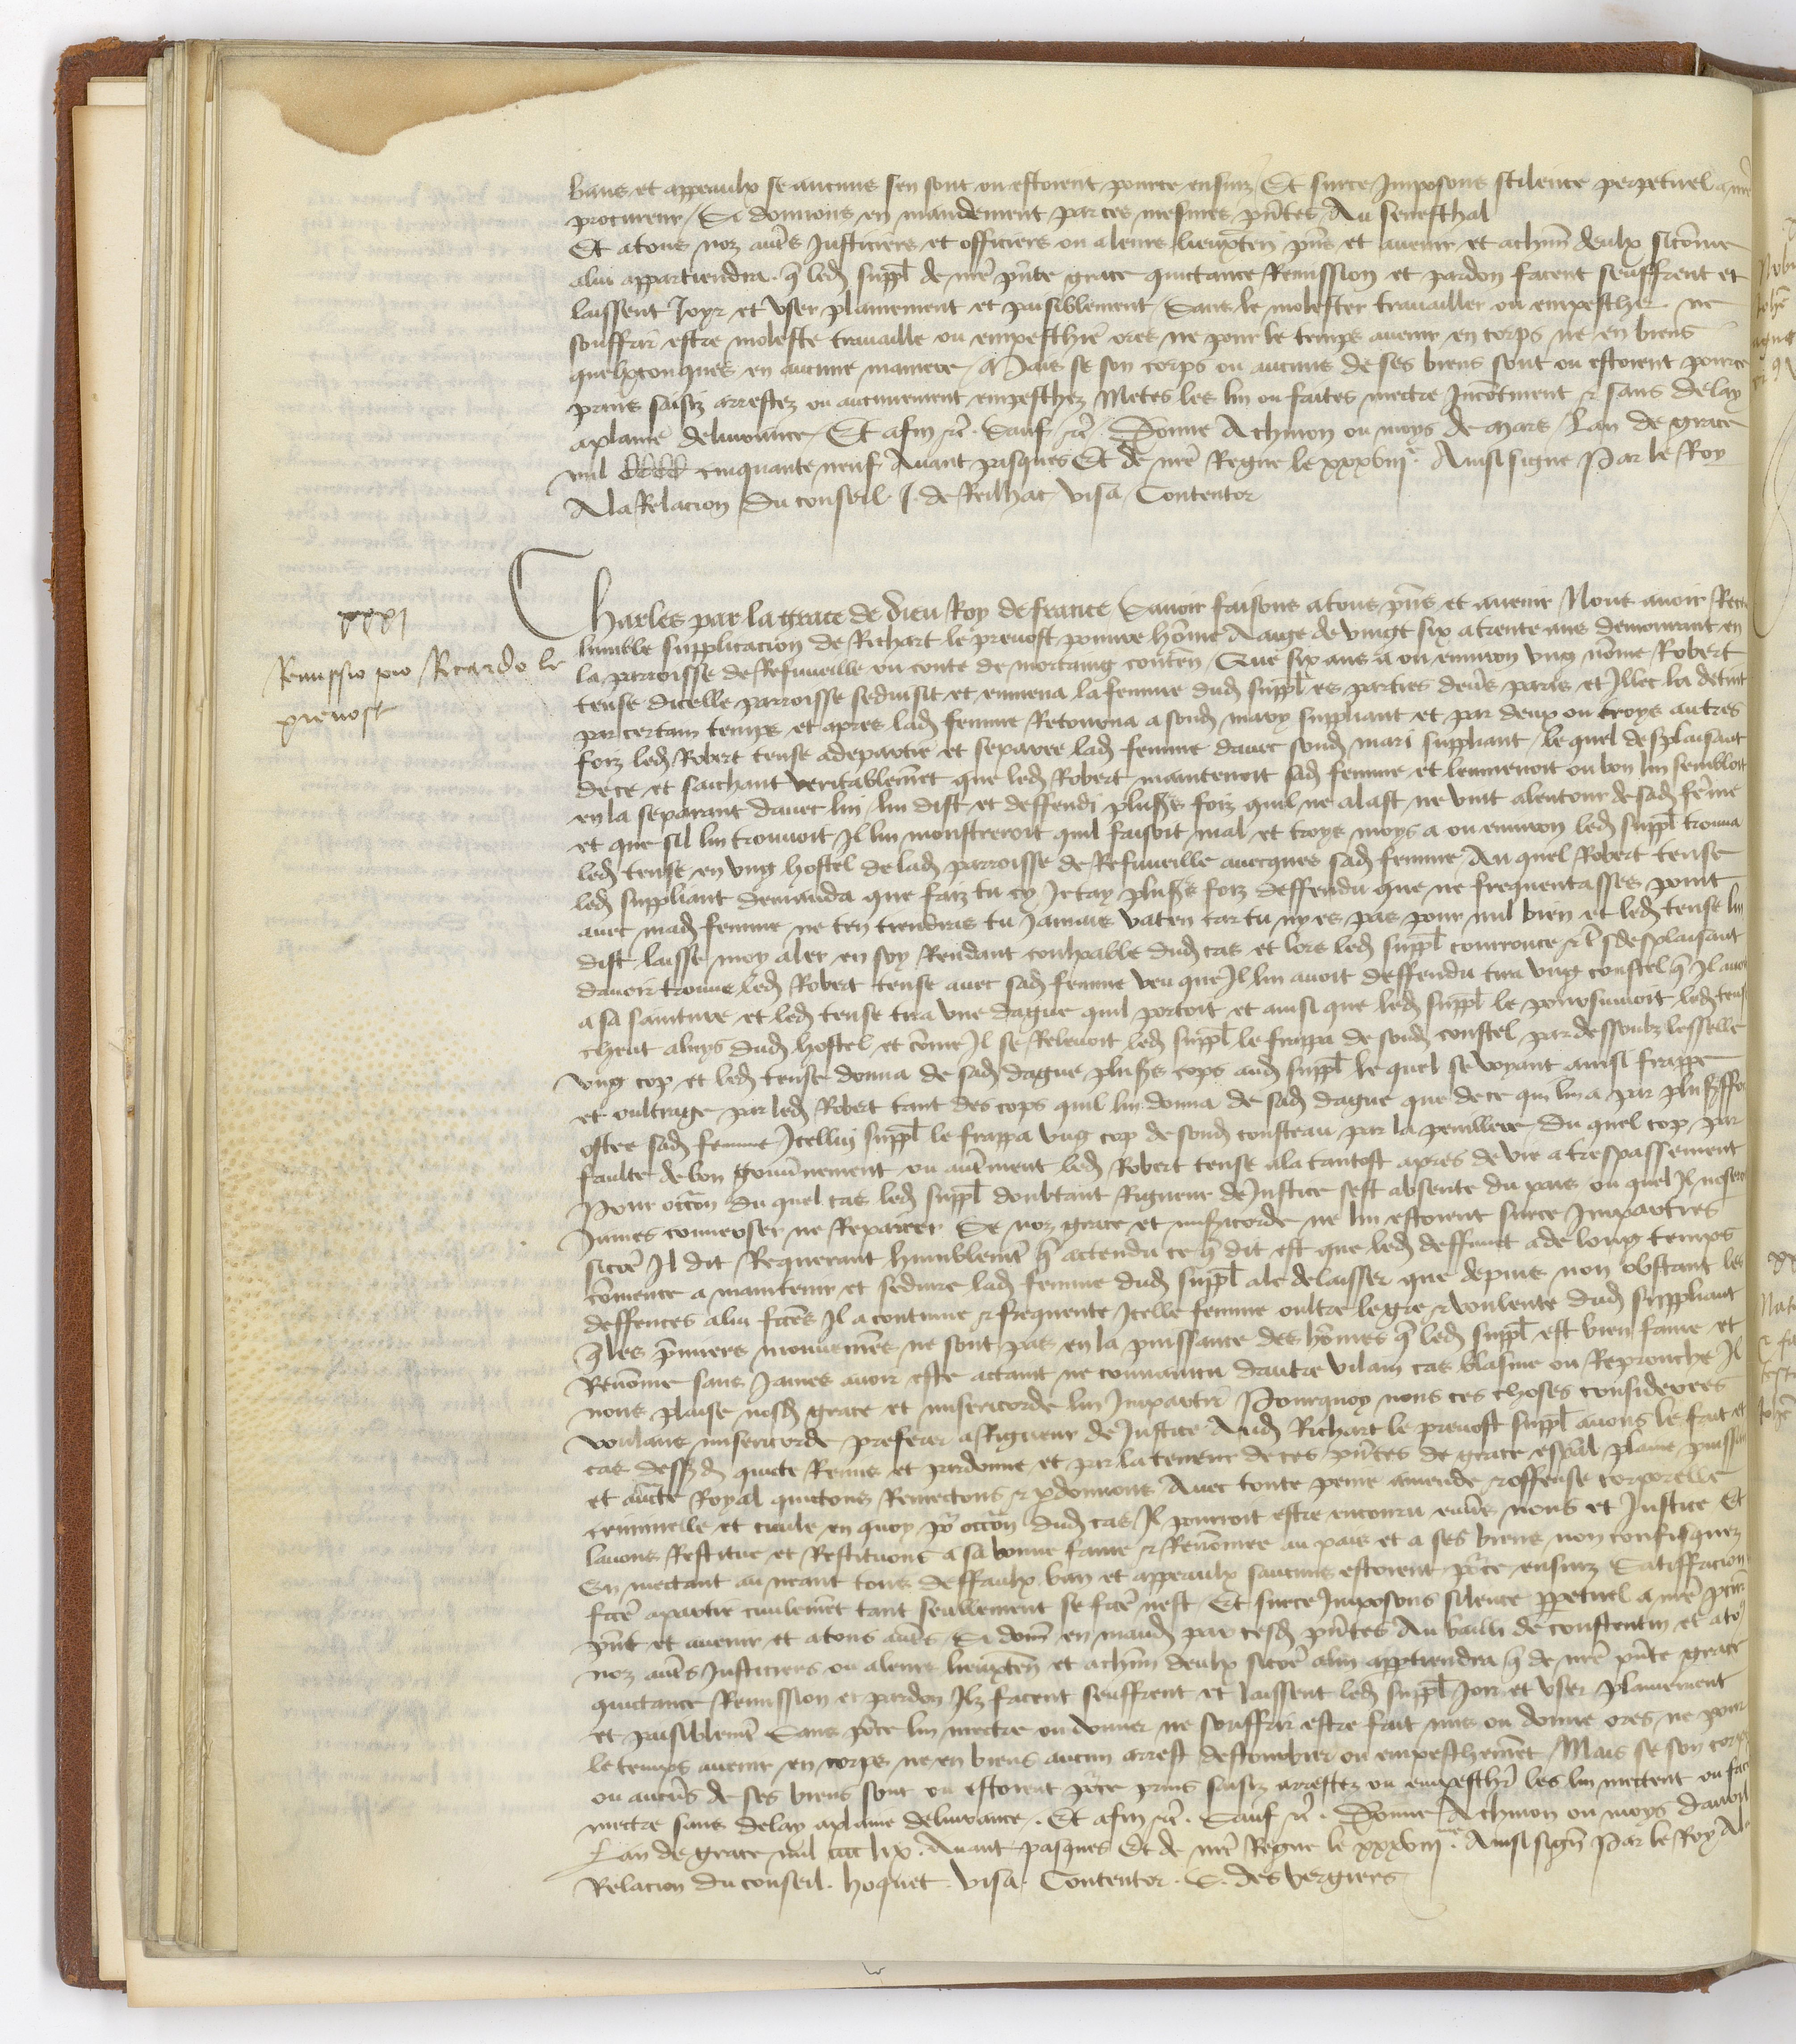 bans et appeaulx se aucuns sen sont ou estoient pource ensuiz Et surce Imposons scilence perpetuel a nre
procureur / Si donnons en mandement par ces mesmes pntes Au seneschal
Et atous noz aues Justiciers et officiers ou aleurs lieuxten pns et auenir et achun deulx sicome
alui appartiendra q led suppl de nre pnte grace quictance Remission et pardon facent seuffrent et
laissent Joyr et vser plainement et paisiblement / Sans le molester trauailler ou empescher ne
souffrir estre moleste trauaille ou empeschie ores ne pour le temps auenir en corps ne en biens
quelxconques en aucune maniere / Mais se son corps ou aucuns de ses biens sont ou estoient pource
prins saisiz arrestez ou aucunement empeschez Metes les lui ou faites mectre Incotinent & sans delay
aplaine deliurance / Et afin &c . Sauf &c . Donne A chinon ou moys de mars / Lan de grace
mil cccc cinquante neuf Auant pasques Et de nre Regne le xxxviije . Ainsi signe Par le Roy
Ala Relacion du conseil . J. de Reilhac visa / Contentor
xxxj
Remissio pro Ricardo le
preuost
Charles par la grace de dieu Roy de france / Sauoir faisons atous pns et auenir Nous auoir Receu
humble supplicacion de Richart le preuost pouure home Aaige de vingt six a trente ans demourant en
la parroisse de Refuueille ou conte de mortaing conten / Que six ans a ou enuiron vng nome Robert
tense dicelle parroisse seduisit et enmena la femme dud suppl es parties deus paris et Illec la detint
par certain temps et apres lad femme Retourna a sond mary suppliant et par deux ou troys autres
foiz led Robert tense adepartie et separee lad femme dauec sond mari suppliant / le quel desplaisant
dece et saichant veritablemet que led Robert maintenoit sad femme et lenmenoit ou bon lui sembloit
en la separant dauec lui / lui dist et deffendi plus's foiz quil ne alast ne vint alentour de sad feme
et que sil lui trouuoit Il lui monstreroit quil faisoit mal et troys moys a ou enuiron led suppl trouua
led tense en vng hostel de lad parroisse de Refuueille auecques sad femme / Au quel Robert tense
led suppliant demanda que faiz tu cy Je tay plus's foiz deffendu que ne frequentasses point
auec mad femme ne ten tiendras tu Jamais vaten car tu ny es pas pour nul bien et led tense lui
dist laisse moy aler en soy Rendant coulpable dud cas et lors led suppl courrouce & desplaisant
dauoir trouue led Robert tense auec sad femme veu que Il lui auoit deffendu tira vng coustel q Il auoit
a sa sainture et led tense tira vne dague quil portoit et ainsi que led suppl le poursuiuoit led tense
cheut aluys dud hostel et come Il se Releuoit led suppl le frappa de sond coustel par dessoubz lesselle
vng cop et led tense donna de sad dague plus's cops aud suppl le quel se voyant ainsi frappe
et oultrage par led Robert tant des cops quil lui donna de sad dague que dece qui lui a par plus's ffoiz
ostee sad femme Icellui suppl le frappa vng cop de sond cousteau par la penilliere du quel cop par
faulte de bon gouuernement ou autement led Robert tense ala tantost apres de vie a trespassement
Pour occon du quel cas led suppl doubtant Rigueur de Justice sest absente du pais ou quel Il noseroit
Jamais conuerser ne Reparer Se noz grace et mis'icorde ne lui estoient surce Imparties
sicoe Il dit Requerant humblemet q actendu ce q dit est que led deffunct a de long temps
comence a maintenir et seduire lad femme dud suppl ale delaisser que depuis non obstant les
deffences alui fces Il a continue & frequente Icelle femme oultre legre & voulente dud suppliant
q les pmiers mouuemes ne sont pas en la puissance des homes q led suppl est bien fame et
Renome sans Jamais auoir este actaint ne conuaincu dautre vilain cas blasme ou Reprouche Il
nous plaise nosd grace et misericorde lui Impartir Pourquoy nous ces choses considerees
voulans misericorde preferer a Rigueur de Justice Aud Richart le preuost suppl auons le fait et
cas dessusd quicte Remis et pardonne et par la teneur de ces pntes de grace especial plaine puissance
et aucte Royal quictons Remectons & pdonnons Auec toute peine amende & offense corporelle
criminelle et ciuile en quoy po occon dud cas Il pourroit estre encouru enus nous et Justice Et
lauons Restitue et Restituons a sa bonne fame & Renomee au pais et a ses biens non confisquez
En mectant au neant tous deffaulx ban et appeaulx saucuns estoient poce ensuiz Satiffacion
fce apartie ciuilemet tant seullement se fce nest / Et surce Imposons silence ppetuel a nre pcur
pnt et auenir et atous aues / Si donn en mand par cesd pntes Au bailli de constentin et atos
noz aues Justiciers ou aleurs lieuxten et achun deulx sicoe alui apptiendra q de nre pnte grace
quictance Remission et pardon Ilz facent seuffrent et laissent led suppl Joir et vser plainement
et paisiblemet Sans poce lui mectre ou donner ne souffrir estre fait mis ou donne ores ne pour
le temps auenir en corps ne en biens aucun arrest destourbier ou empeschemet / Mais se son corps
ou aucus de ses biens sont ou estoient poce prins saisiz arrestez ou empeschez les lui mectent ou facent
mectre sans delay aplaine deliurance . Et afin &c . Sauf &c . Donne A chinon ou moys dauril
Lan de grace mil cccc lix . Auant pasques Et de nre Regne le xxxviije . Ainsi sign Par le Roy Ala
Relacion du conseil . hoquet . visa . Contentor . E . des vergiers